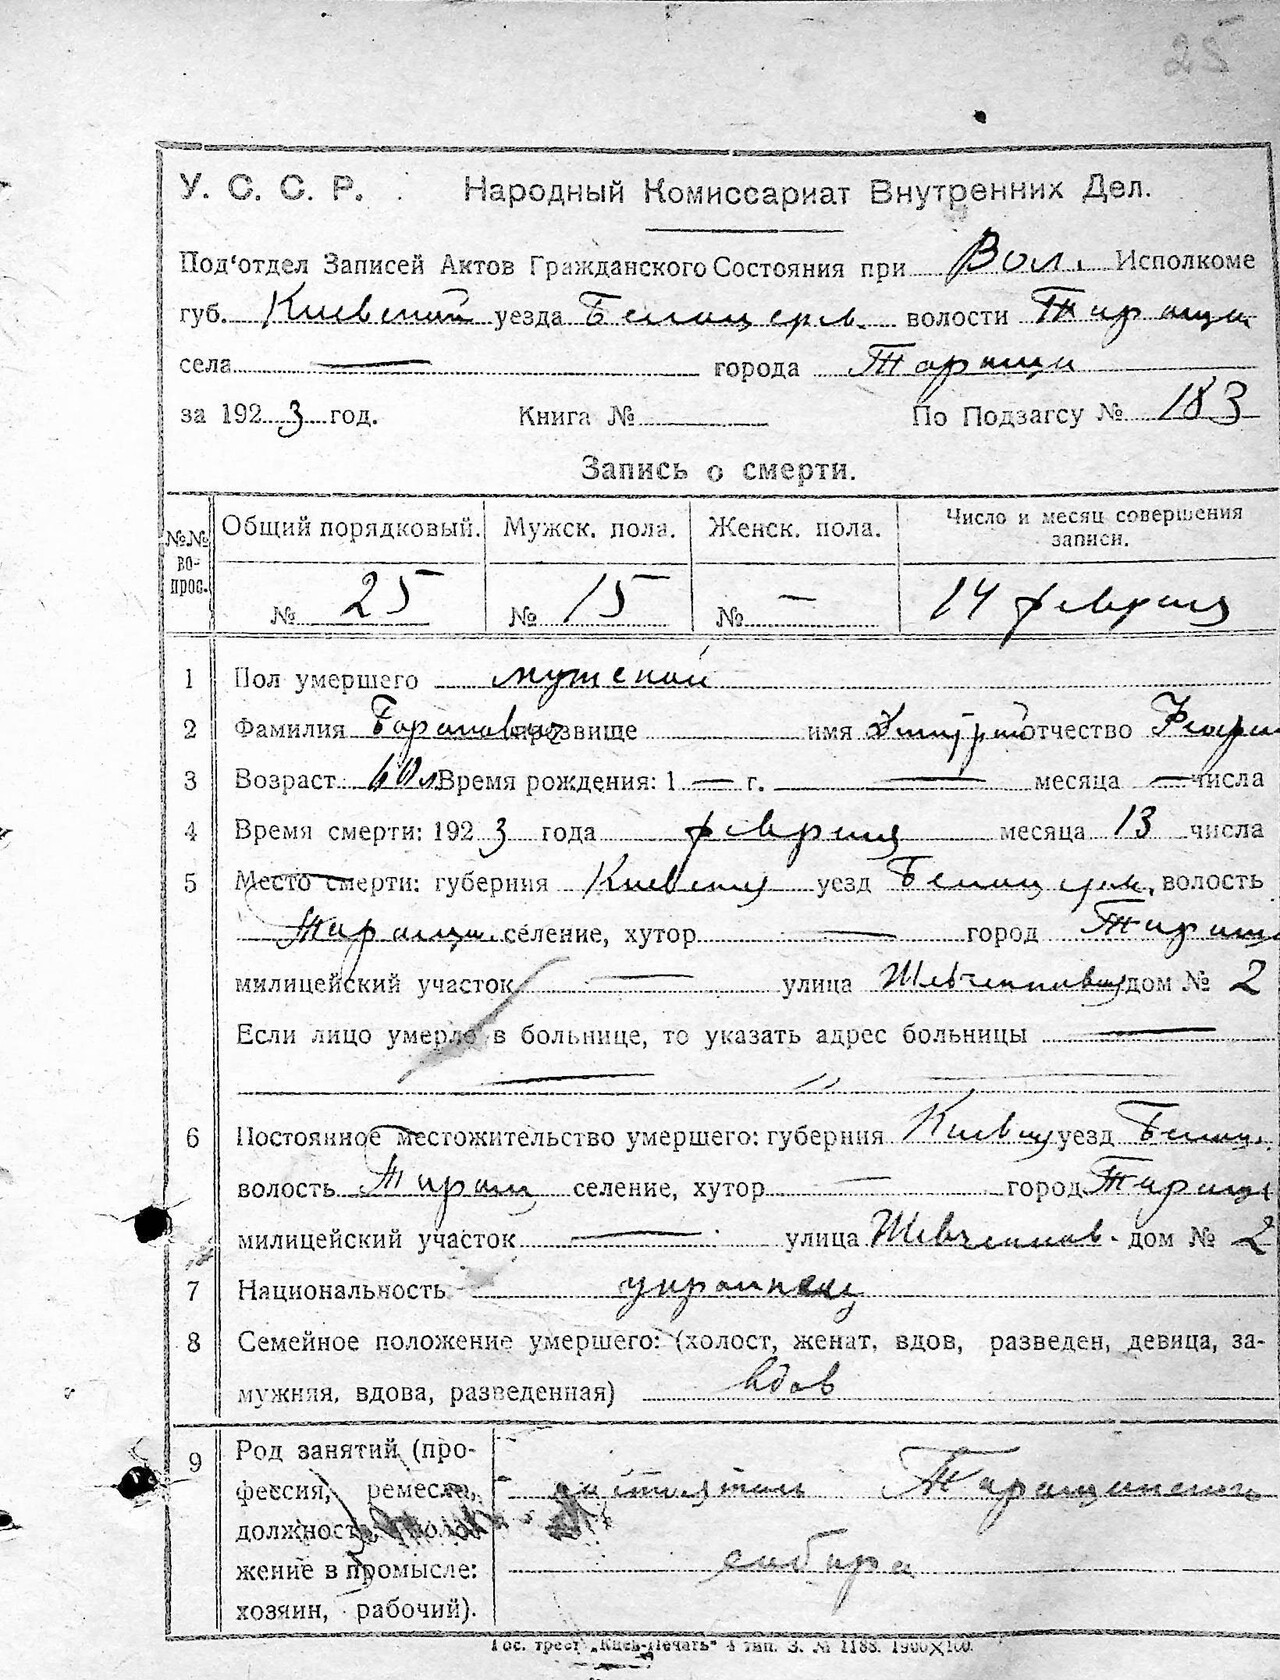 25
У. С. С. Р. Народный Комиссариат Внутренних Дел.
Под'отдел Записей Актов Гражданского Состояния при Вол. Исполкоме
губ. Киевский уезда Белоцерк. волости Тараща
села — города Тараща
за 1923 год. Книга № По Подзагсу № 183
Запись о смерти.
№№ вопрос. Общий порядковый. Мужск. пола. Женск. пола. Число и месяц совершения записи.
№ 25 № 15 № — 14 февраля
1 Пол умершего мужской
2 Фамилия Баранович прозвище имя Дмитрий отчество
3 Возраст 60 л Время рождения: 1 — г. — месяца — числа
4 Время смерти: 1923 года февраля месяца 13 числа
5 Место смерти: губерния Киевская уезд Белоцерк. волость
Таращ. селение, хутор — город Тараща
милицейский участок — улица Шевченковская дом № 2
Если лицо умерло в больнице, то указать адрес больницы —
— "
6 Постоянное местожительство умершего: губерния уезд Белоц.
волость Таращ селение, хутор — город Тараща
милицейский участок — улица Шевченков. дом № 2
7 Национальность украинец
8 Семейное положение умершего: (холост, женат, вдов, разведен, девица, за-
мужняя, вдова, разведенная) вдов
9 Род занятий (про-
фессия, ремесло, настоятель Таращанского
должность, поло-
жение в промысле: собора
хозяин, рабочий).
Гос. трест „Киев-Печать" 4 тип. З. № 1188. 1900X100.